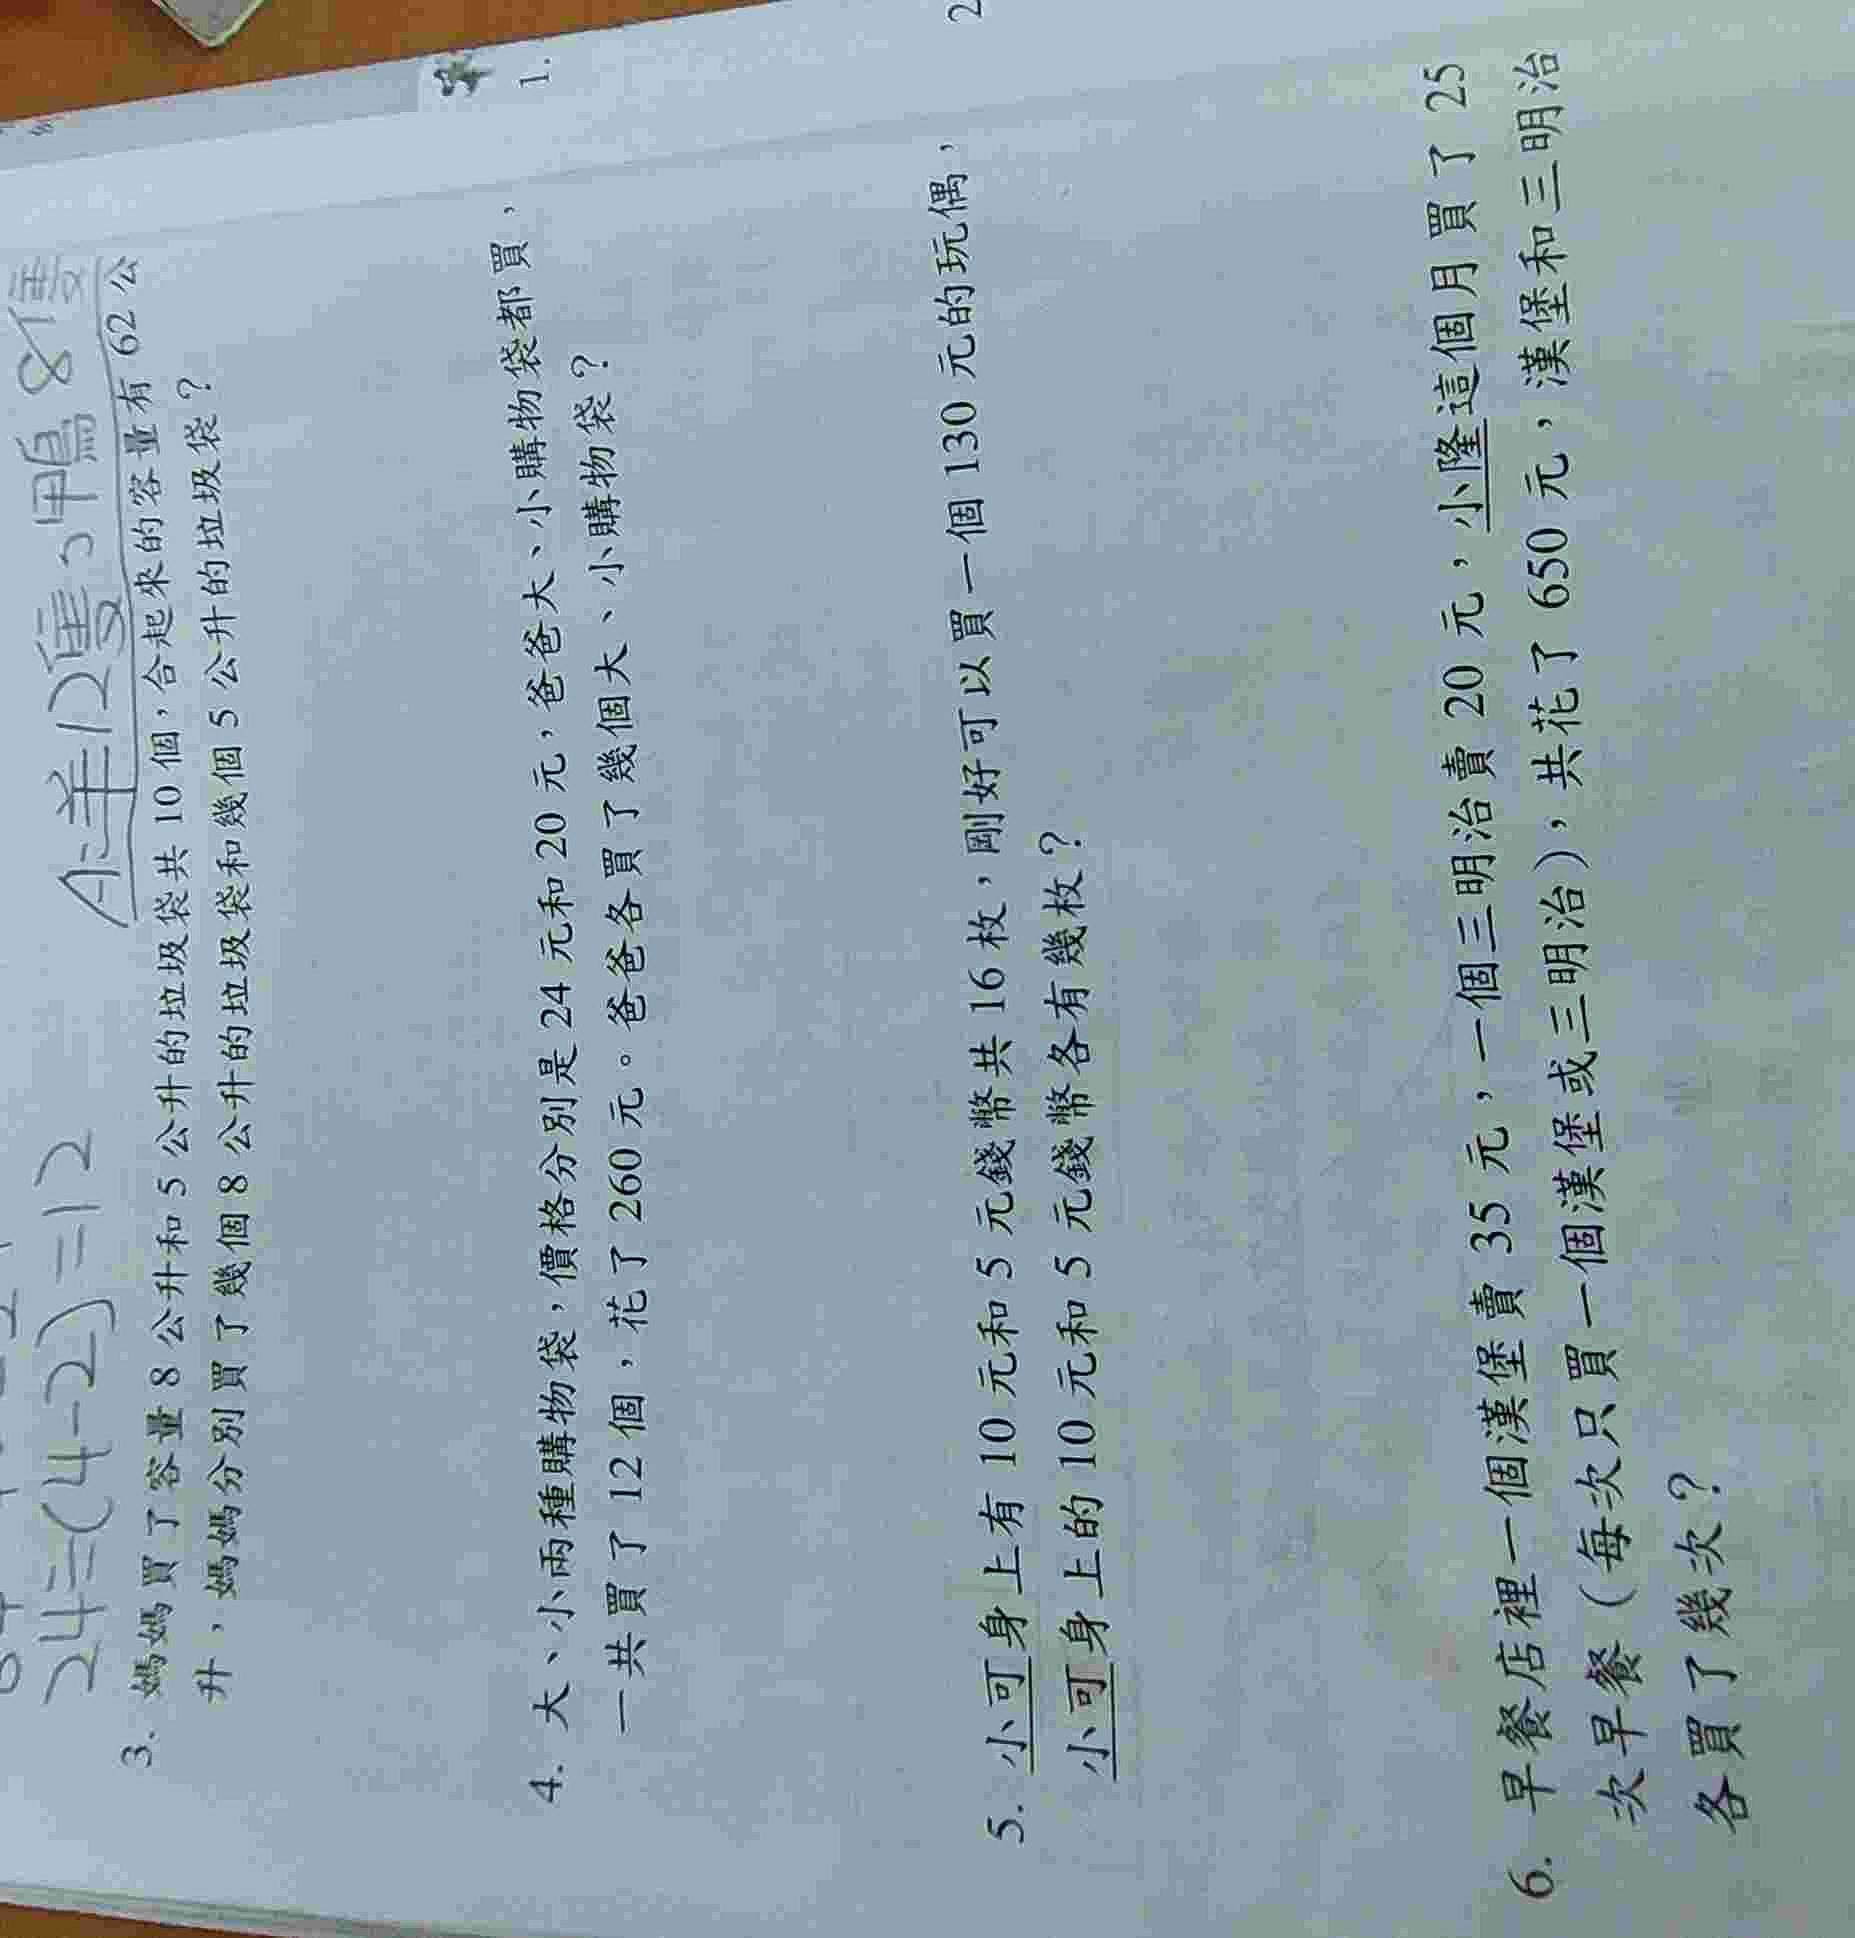 24÷(4-2)=12
A:羊12隻、鴨8隻
3. 媽媽買了容量 8 公升和 5 公升的垃圾袋共 10 個，合起來的容量有 62 公
升，媽媽分別買了幾個 8 公升的垃圾袋和幾個 5 公升的垃圾袋？
4. 大、小兩種購物袋，價格分別是 24 元和 20 元，爸爸大、小購物袋都買，
一共買了 12 個，花了 260 元。爸爸各買了幾個大、小購物袋？
5. 小可身上有 10 元和 5 元錢幣共 16 枚，剛好可以買一個 130 元的玩偶，
小可身上的 10 元和 5 元錢幣各有幾枚？
6. 早餐店裡一個漢堡賣 35 元，一個三明治賣 20 元，小隆這個月買了 25
次早餐（每次只買一個漢堡或三明治），共花了 650 元，漢堡和三明治
各買了幾次？
1.
2